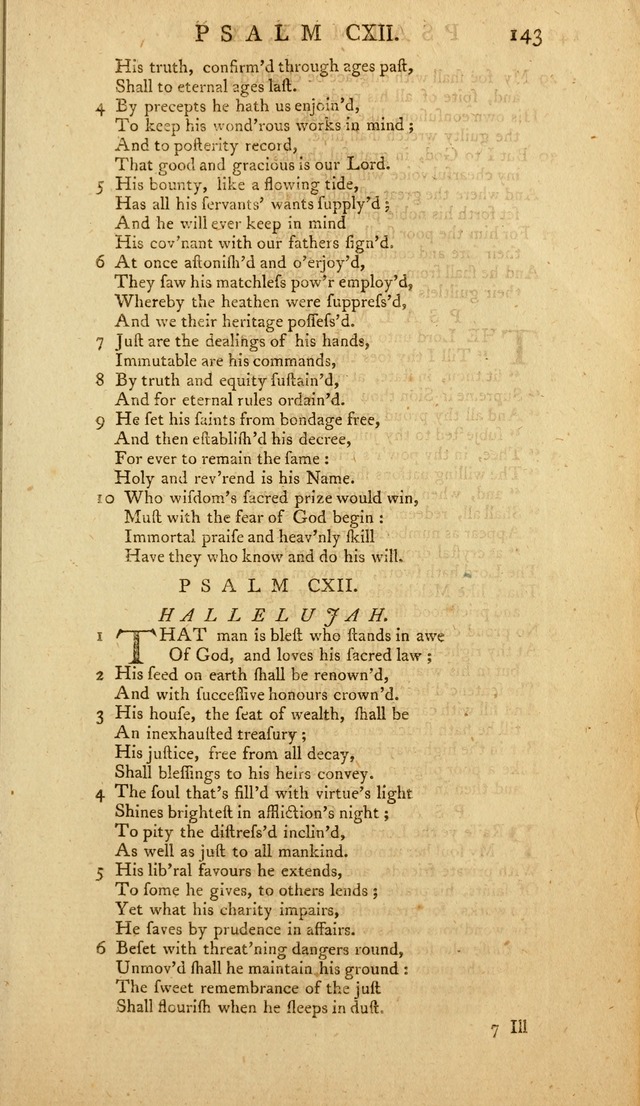 PSALM CXII. 143
His truth, confirm'd through ages paſt,
Shall to eternal ages laſt.
4 By precepts he hath us enjoin'd,
To keep his wond'rous works in mind ;
And to poſterity record,
That good and gracious is our Lord.
5 His bounty, like a flowing tide,
Has all his ſervants' wants ſupply'd ;
And he will ever keep in mind
His cov'nant with our fathers ſign'd.
6 At once aſtoniſh'd and o'erjoy'd,
They ſaw his matchleſs pow'r employ'd,
Whereby the heathen were ſuppreſs'd,
And we their heritage poſſeſs'd.
7 Juſt are the dealings of his hands,
Immutable are his commands,
8 By truth and equity ſuſtain'd,
And for eternal rules ordain'd.
9 He ſet his ſaints from bondage free,
And then eſtabliſh'd his decree,
For ever to remain the ſame :
Holy and rev'rend is his Name.
10 Who wiſdom's ſacred prize would win,
Muſt with the fear of God begin :
Immortal praiſe and heav'nly ſkill
Have they who know and do his will.
PSALM CXII.
HALLELUJAH.
1 THAT man is bleſt who ſtands in awe
Of God, and loves his ſacred law ;
2 His ſeed on earth ſhall be renown'd,
And with ſucceſſive honours crown'd.
3 His houſe, the ſeat of wealth, ſhall be
An inexhauſted treaſury ;
His juſtice, free from all decay,
Shall bleſſings to his heirs convey.
4 The ſoul that's fill'd with virtue's light
Shines brighteſt in affliction's night ;
To pity the diſtreſs'd inclin'd,
As well as juſt to all mankind.
5 His lib'ral favours he extends,
To ſome he gives, to others lends ;
Yet what his charity impairs,
He ſaves by prudence in affairs.
6 Beſet with threat'ning dangers round,
Unmov'd ſhall he maintain his ground :
The ſweet remembrance of the juſt
Shall flouriſh when he ſleeps in duſt.
7 Ill